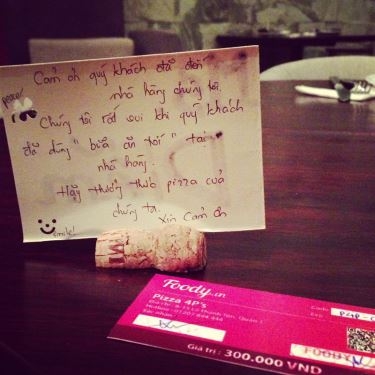 peace!
Cảm ơn quý khách đã đến
nhà hàng chúng tôi.
Chúng tôi rất vui khi quý khách
đã dùng "bữa ăn tối" tại
nhà hàng.
Hãy thưởng thức pizza của
chúng ta.
Xin Cảm ơn
Smile!
Foody.vn
Pizza 4P'S
Code
Giá trị: 300.000 VND
FOODY